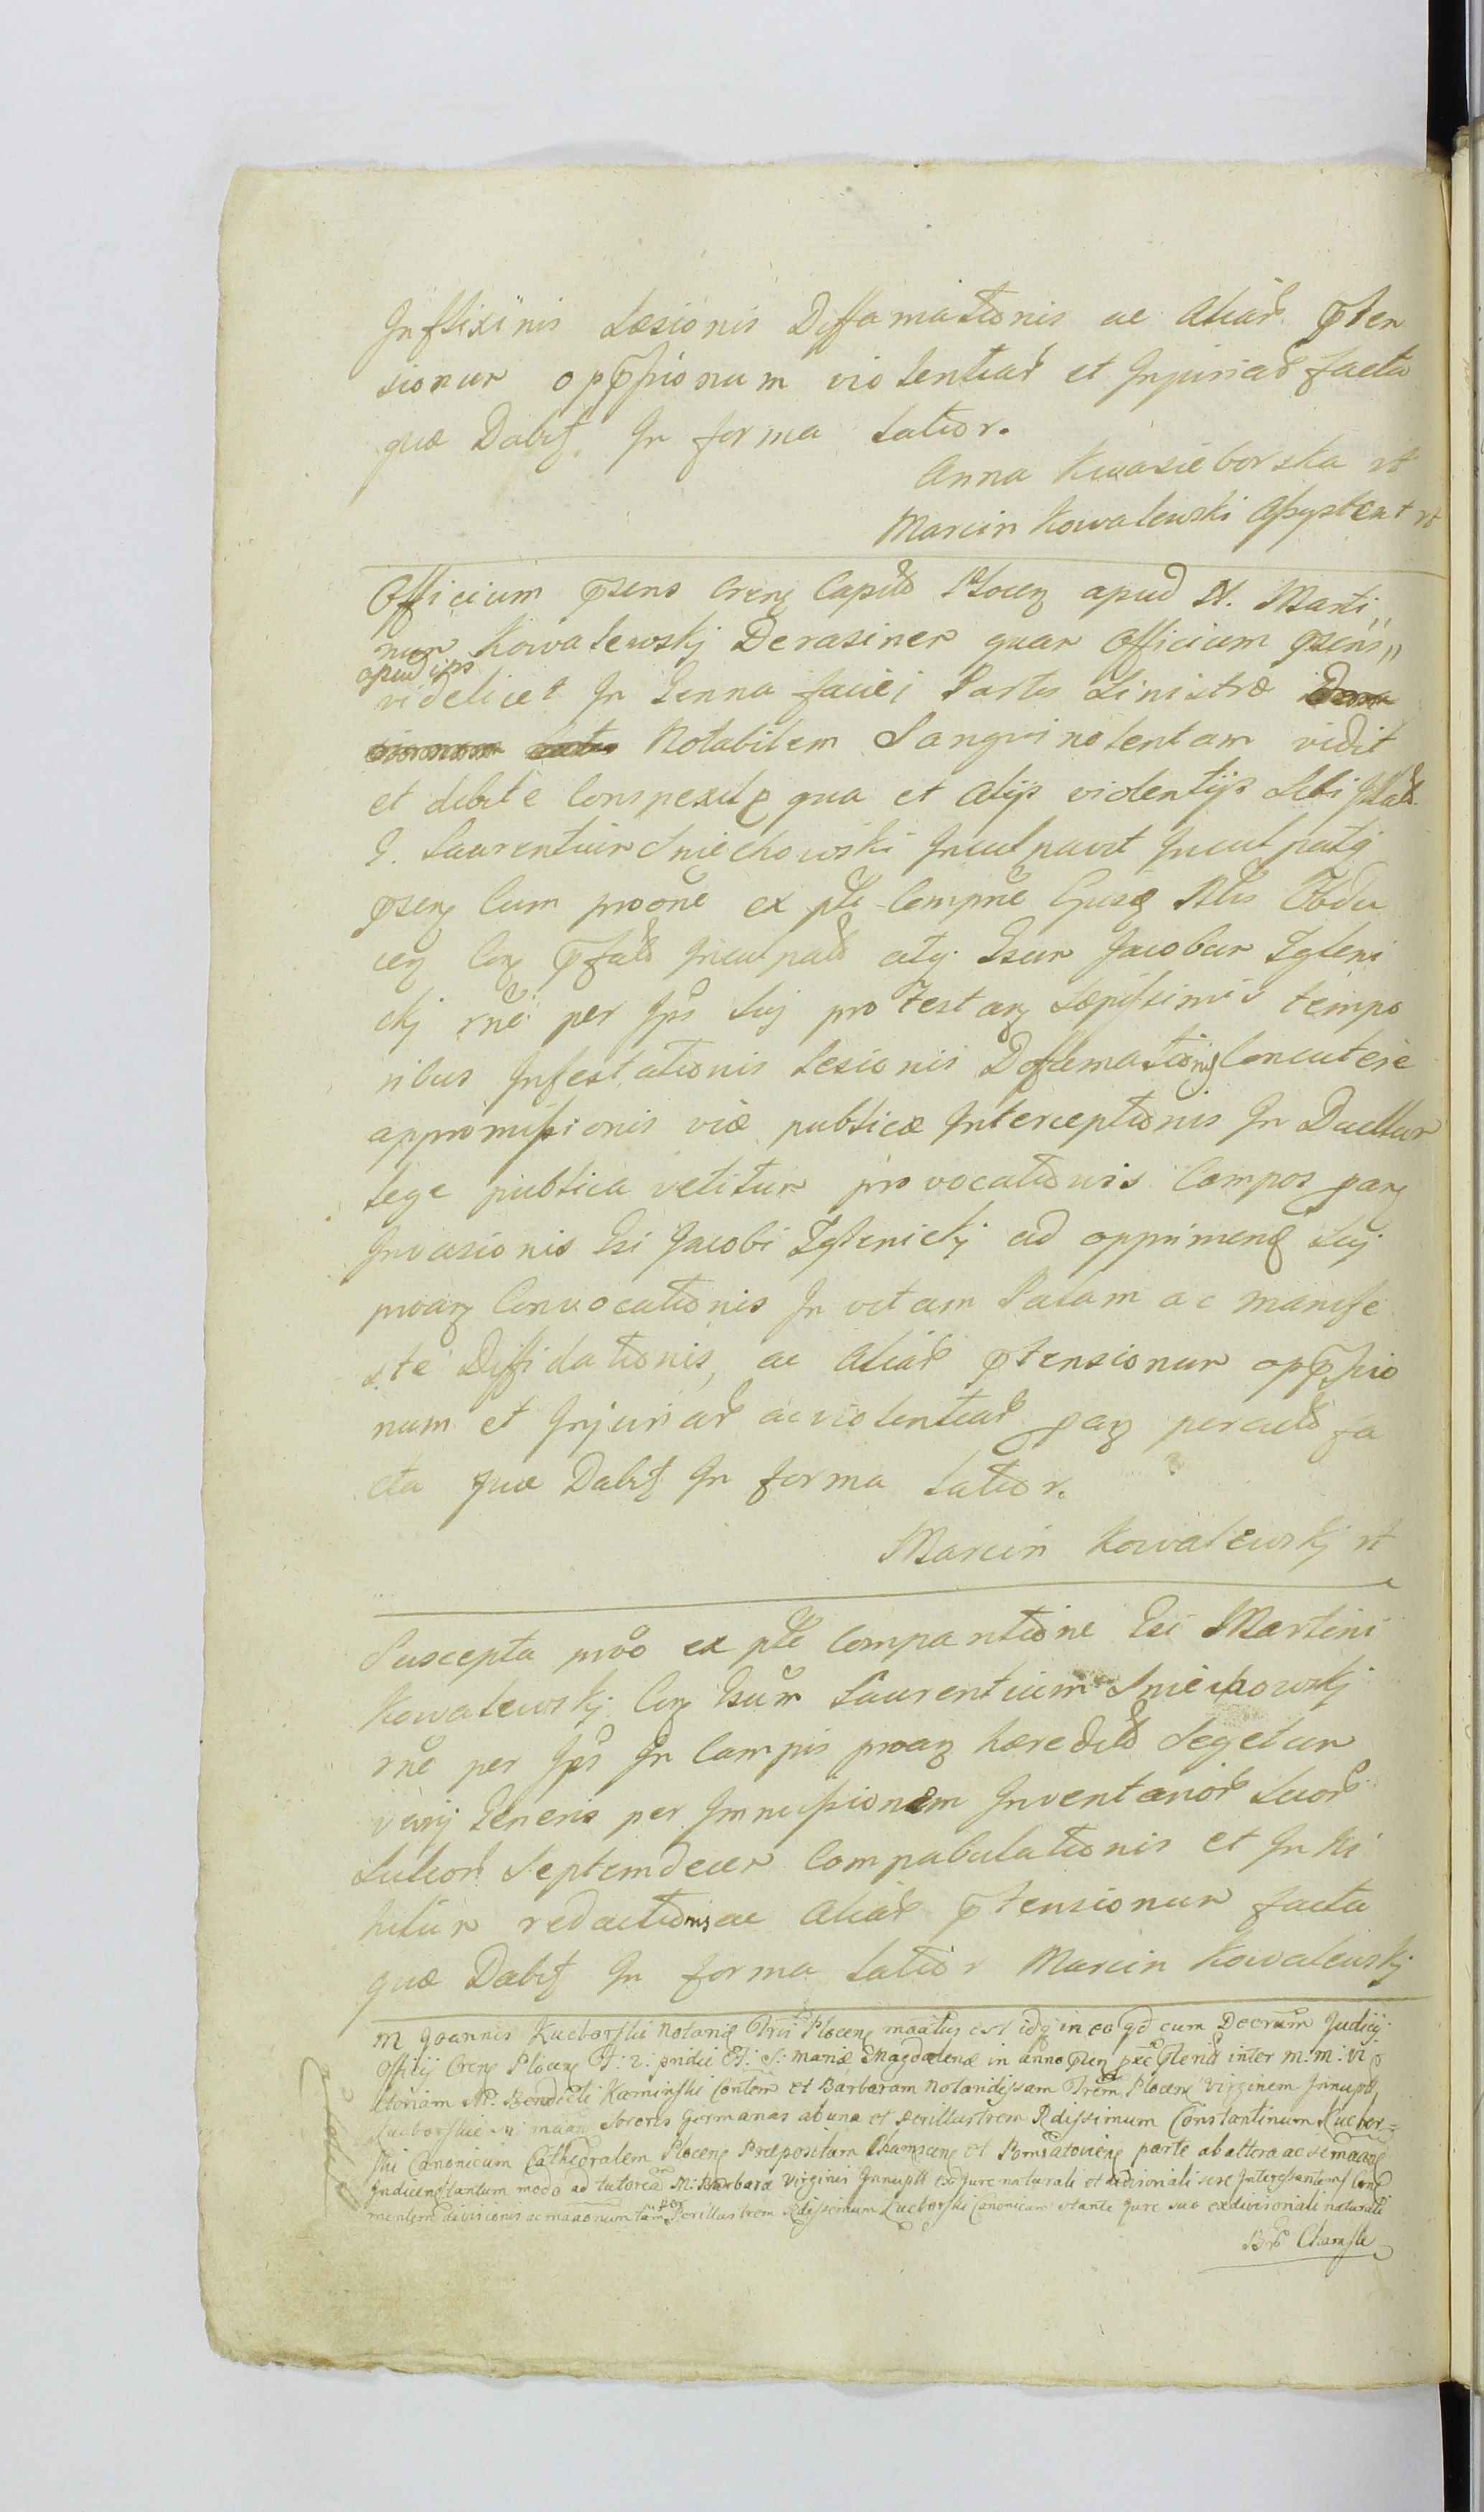 Inflixinis Læsionis Diffamationis ac Aliar pten
sionum oppssionum violentiar et Injuriar facta
quæ Dabit. In forma Latior.
Anna Kwasieborska rt
Marcin Kowalewski Assystent rt
Officium psens Crense Capit Plocen apud N. Marti,,
num Kowalewskj Derasinem quam Officium psens,,
apud ips
videlicet In Genna faciei Partis Sinistræ
Notabilem Sanguinolentam vidit
et debite Conspexit p qua et Alijs violentijs Sibi Illat.
G. Laurentium Sniechowski Inculpavit Inculpatq
psens Cum proone ex pte Compne Ejusd Ptis Obdu
cen Con pfat Inculpat atq Gsum Jacobum Iglini
ckj rne per Ips Suj protestan Sæpissimis tempo
ribus Infestationis Lesionis Deffamationis Concutere
appromissionis viæ publicæ Interceptionis In Duellum
lege publica vetitum provocationis Campos pan
Invasionis Gsi Jacobi Iglenickj ad opprimend Suj
proan Convocationis In vitam Palam ac manife
ste Diffidationis, ac Aliar ptensionum oppssio
num et Injuriar ac violentiar pan peract fa
cta quæ Dabit In forma Latior.
Marcin Kowalewskj rt
Suscepta proo ex pte Comparitione Gsi Martini
Kowalewskj Con Gsum Laurentium Sniechowskj
rne per Ips In Campis proan hæredit Segetum
varij Generis per Immissionem Inventarior Suor
Sulcor Septemdecem Compabulationis et In Ni
hilum redactionis ac Aliar ptensionum facta
quæ Dabit In forma Latior Marcin Kowalewskj
M Joannis Kucborski Notarij Tris Plocen maatus est idq in eo qd cum Decrum Judicij
Officij Crens Plocen F: 2: pridie F: S: Mariæ Magdalenæ in anno pten pxe pterit inter M: M: Vi
ctoriam M. Benedicti Kaminski Contem et Barbaram Notaridissam Trem Plocen Virginem Innupt
Kucborskie sorores Germanas ab una et Perillustrem Rdissimum Constantinum Kucbor=
ski Canonicum Cathedralem Plocen Præpositum Chamscen et parte ab altera ac semaan
Indicen tantum modo ad tutorea M: Barbara Virginis Innupt ex Jure naturali et divisionali sese Interessantem
divisionis ac maaonum tam Perillustrem Rdissimum Kucborski Canonicum Jure suo ex divisionali naturali